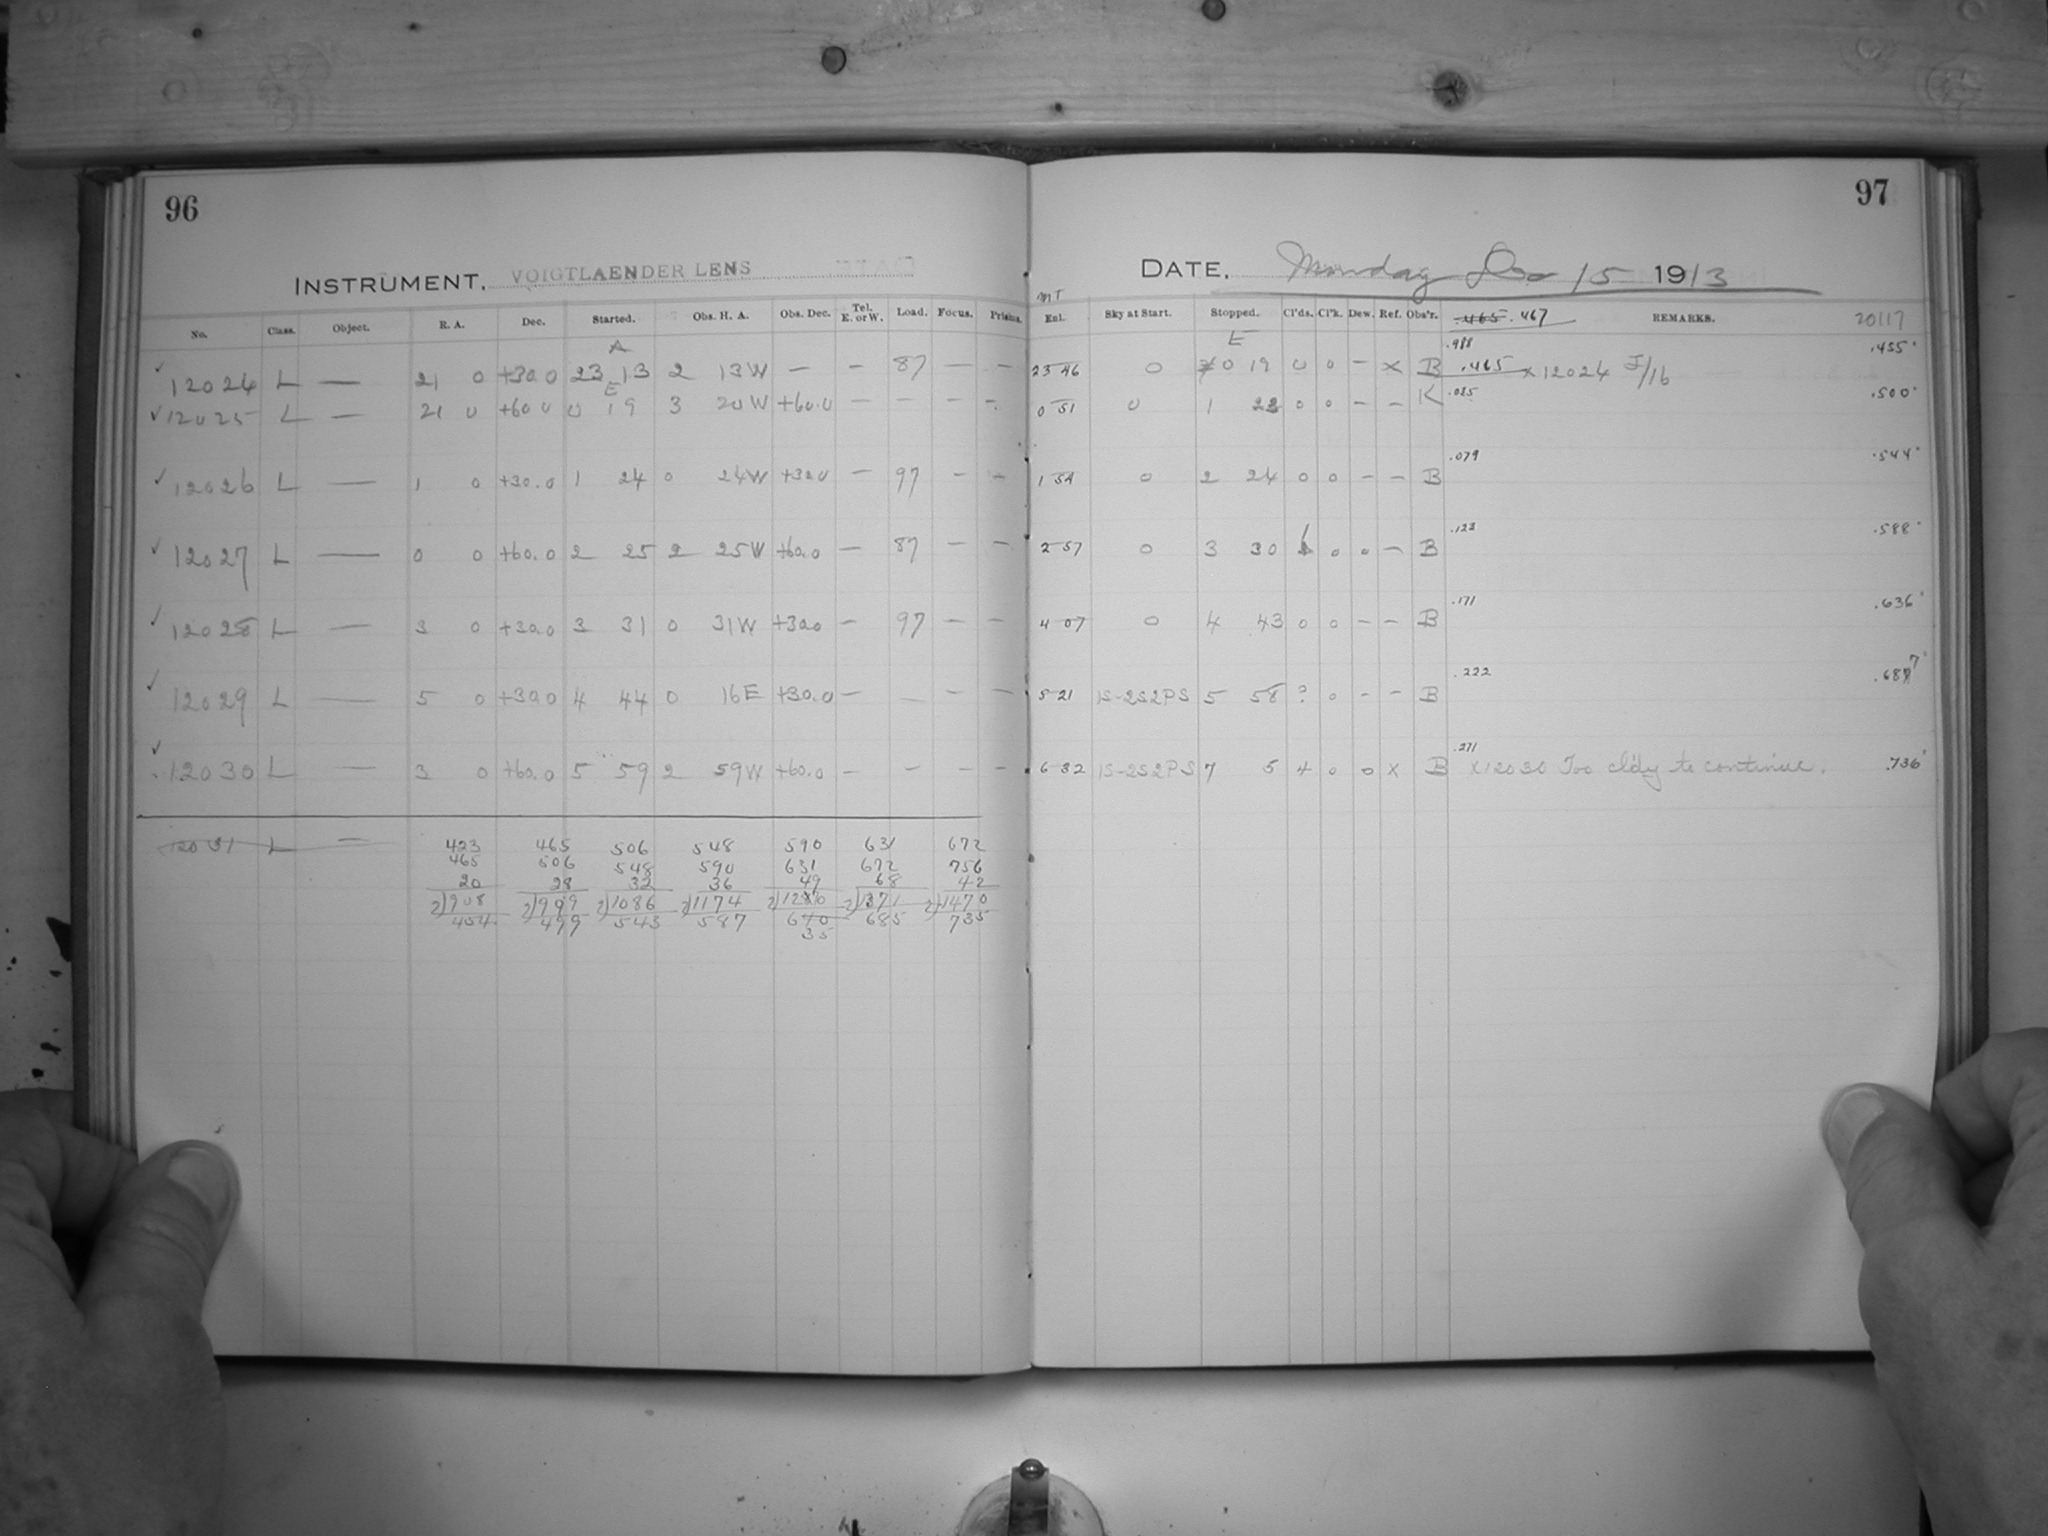 96
INSTRUMENT. VOIGTLAENDER LENS
No. Class. Object. R. A. Dec. Started. Obs. H. A. Obs. Dec. Tel. E. or W. Load. Focus. Prisms.
A
✓ 12024 L — 21 0 +30.0 23 13 2 13W — — 87 — —
E
✓ 12025 L — 21 0 +60.0 0 19 3 20W +60.0 — — — —
✓ 12026 L — 1 0 +30.0 1 24 0 24W +30.0 — 97 — —
✓ 12027 L — 0 0 +60.0 2 25 2 25W +60.0 — 87 — —
✓ 12028 L — 3 0 +30.0 3 31 0 31W +30.0 — 97 — —
✓ 12029 L — 5 0 +30.0 4 44 0 16E +30.0 — — — —
✓ 12030 L — 3 0 +60.0 5 59 2 59W +60.0 — — — —
12031 L —
423 465 506 548 590 631 672
465 506 548 590 631 672 756
20 28 32 36 49 68 42
2)908 2)999 2)1086 2)1174 2)1371 2)1470
454 499 543 587 685 735
35
97
DATE. Monday Dec 15 1913
MT
Exl. Sky at Start. Stopped. Cl'ds. Cl'k. Dew. Ref. Obs'r. .465 .467 REMARKS. 20117
E
23 46 0 0 19 0 0 — x B .988 .465 x 12024 J/16 .455
0 51 0 1 22 0 0 — — K .025 .500
1 54 0 2 24 0 0 — — B .079 .544
2 57 0 3 30 0 0 — B .123 .588
4 07 0 4 43 0 0 — — B .171 .636
5 21 1S-2S2PS 5 58 ? 0 — — B .222 .687
6 32 1S-2S2PS 7 5 4 0 0 x B .271 x12030 Too cl'dy to continue. .736